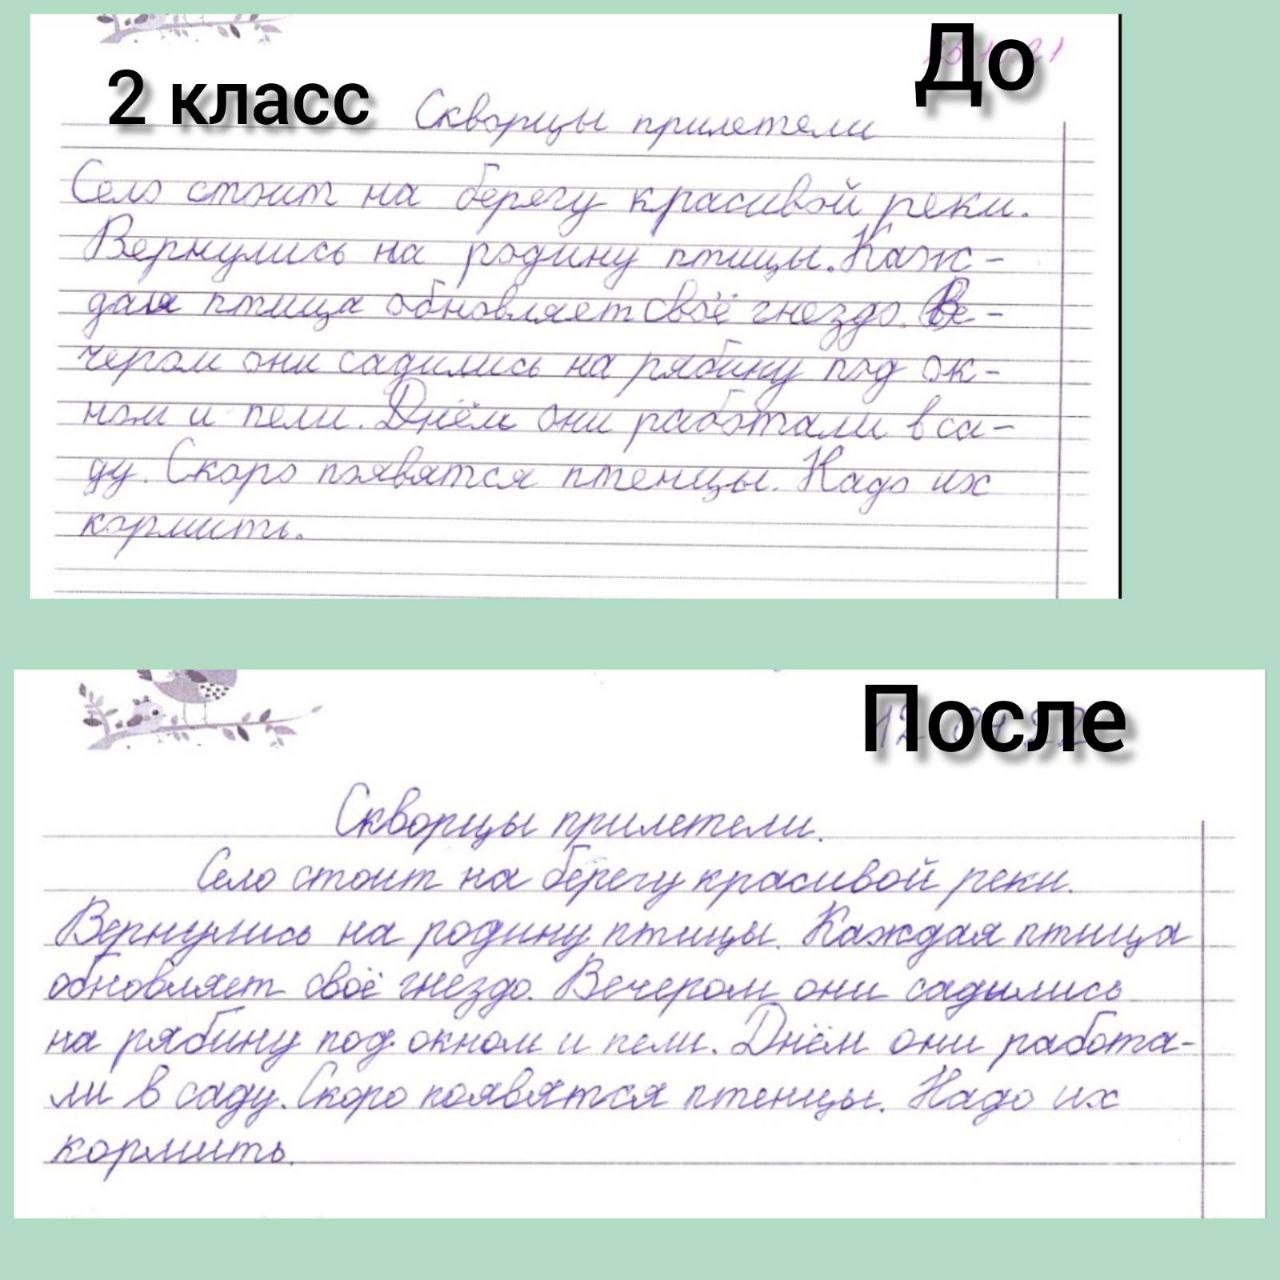 До
2 класс
Скворцы прилетели
Село стоит на берегу красивой реки.
Вернулись на родину птицы. Каж-
дая птица обновляет своё гнездо. Ве-
чером они садились на рябину под ок-
ном и пели. Днём они работали в са-
ду. Скоро появятся птенцы. Надо их
кормить.
После
Скворцы прилетели.
Село стоит на берегу красивой реки.
Вернулись на родину птицы. Каждая птица
обновляет своё гнездо. Вечером они садились
на рябину под окном и пели. Днём они работа-
ли в саду. Скоро появятся птенцы. Надо их
кормить.